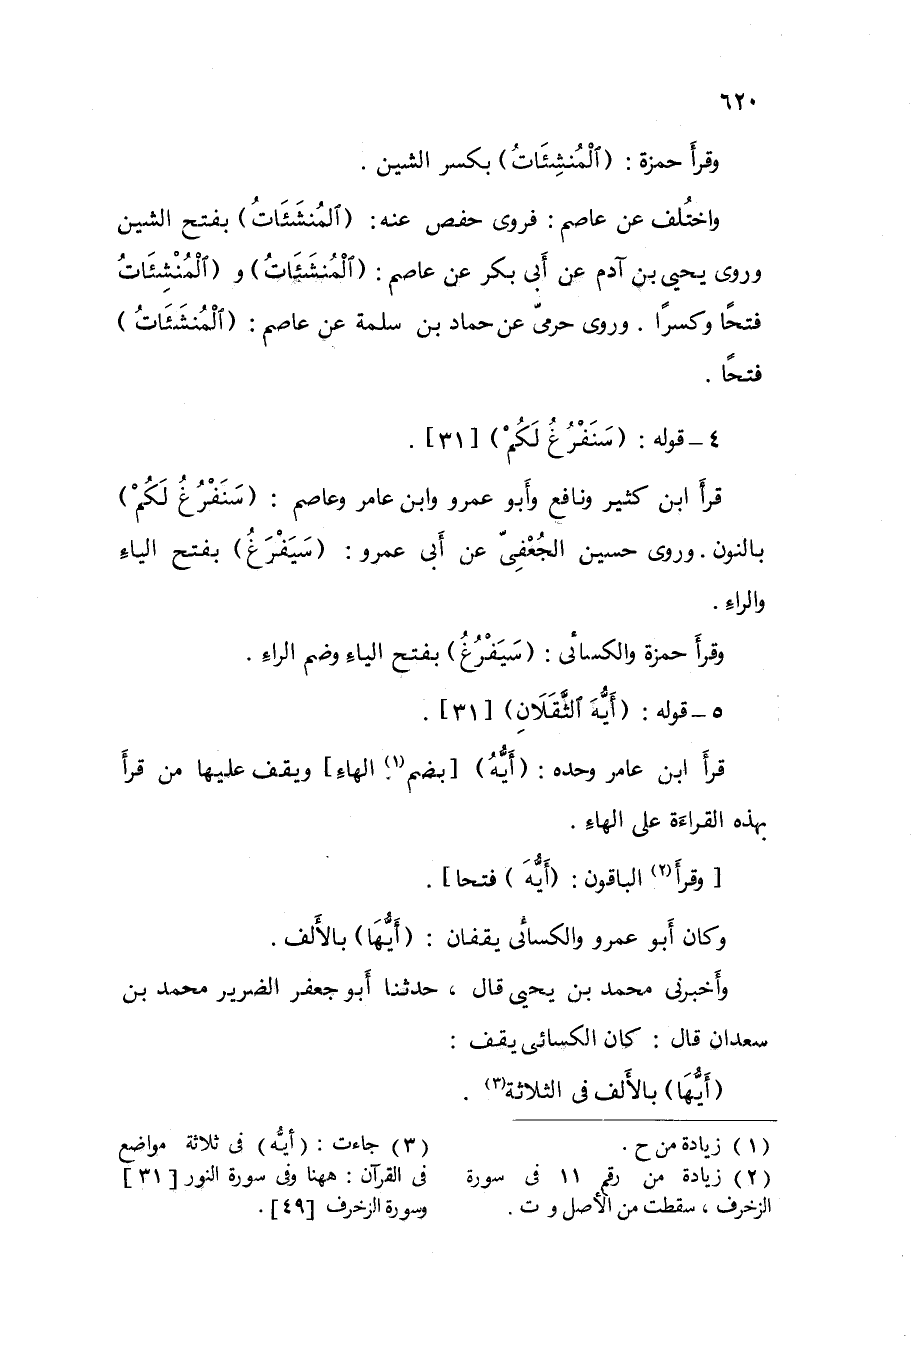 ٦٢٠
وقرأ حمزة : (ٱلْمُنشِئَاتُ) بكسر الشين .
واختُلف عن عاصم : فروى حفص عنه : (ٱلمُنشَئَاتُ) بفتح الشين
وروى يحيى بن آدم عن أَبى بكر عن عاصم : (ٱلْمُنشَئَاتُ) و (ٱلْمُنْشِئَاتُ
فتحًا وكسرًا . وروى حرمىّ عن حماد بن سلمة عن عاصم : (ٱلْمُنشَئَاتُ )
فتحًا .
٤ ــ قوله : (سَنَفْرُغُ لَكُمْ) [٣١] .
قرأَ ابن كثير ونافع وأَبو عمرو وابن عامر وعاصم : (سَنَفْرُغُ لَكُمْ)
بالنون . وروى حسين الجُعْفِىّ عن أَبى عمرو : (سَيَفْرَغُ) بفتح الياءِ
والراءِ .
وقرأَ حمزة والكسائى : (سَيَفْرُغُ) بفتح الياءِ وضم الراءِ .
٥ ــ قوله : (أَيُّهَ ٱلثَّقَلَانِ) [٣١] .
قرأَ ابن عامر وحده : (أَيُّهُ) [بضم(١) الهاءِ] ويقف عليها من قرأَ
بهذه القراءَة على الهاءِ .
[ وقرأَ(٢) الباقون : (أَيُّهَ ) فتحا] .
وكان أَبو عمرو والكسائى يقفان : (أَيُّهَا) بالأَلف .
وأَخبرنى محمد بن يحيى قال ، حدثنا أَبو جعفر الضرير محمد بن
سعدان قال : كان الكسائى يقف :
(أَيُّهَا) بالأَلف فى الثلاثة(٣) .
(١) زيادة من ح .
(٢) زيادة من رقم ١١ فى سورة
الزخرف ، سقطت من الأصل و ت .
(٣) جاءت : (أيُّه) فى ثلاثة مواضع
فى القرآن : ههنا وفى سورة النور [٣١]
وسورة الزخرف [٤٩] .